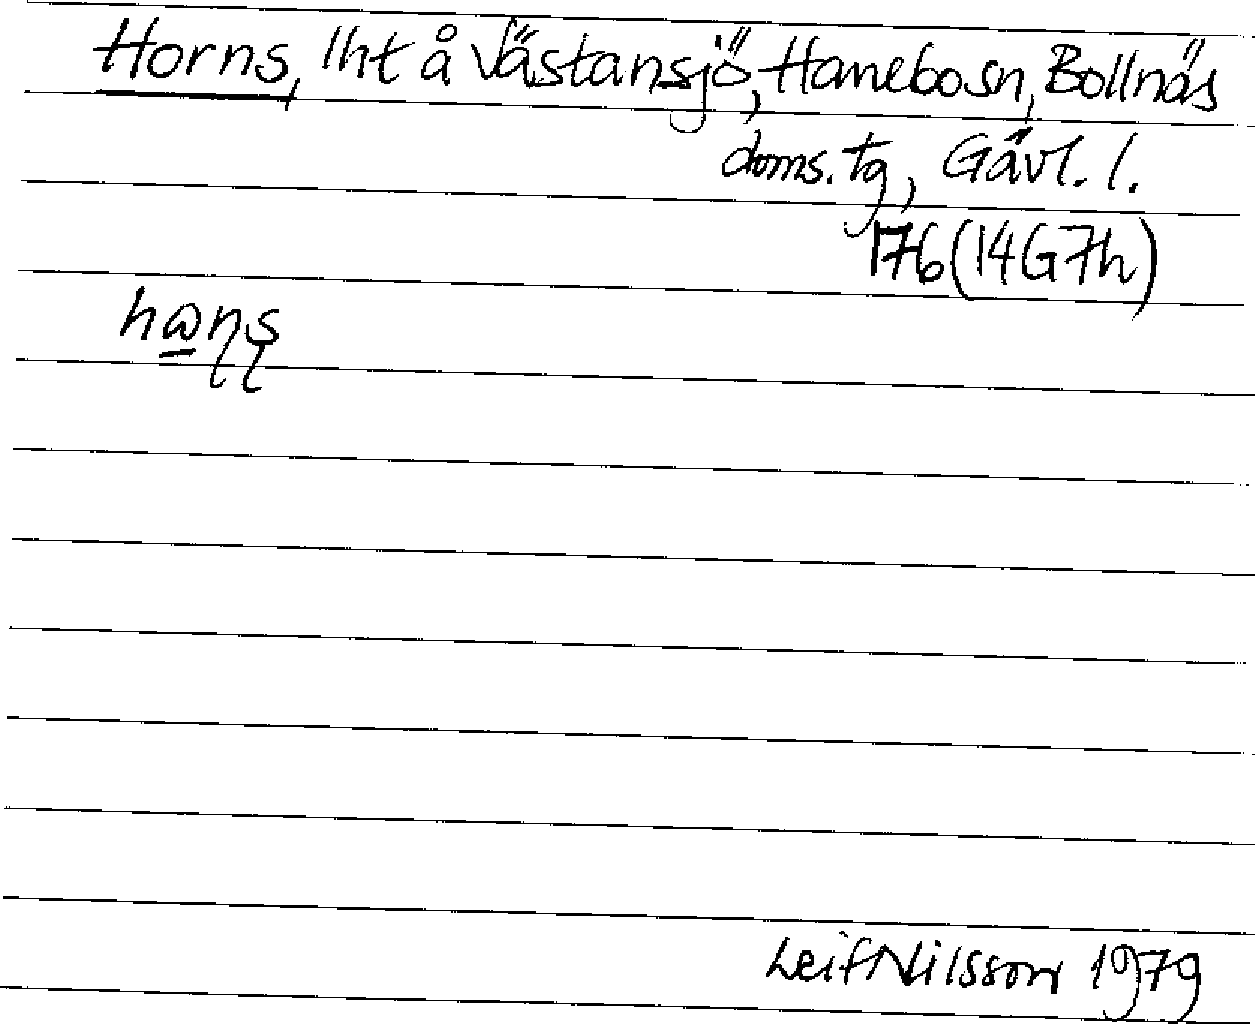 Horns, lht å Västansjö, Hanebo sn, Bollnäs
doms. tg, Gävl. l.
176 (14G7h)
Leif Nilsson 1979